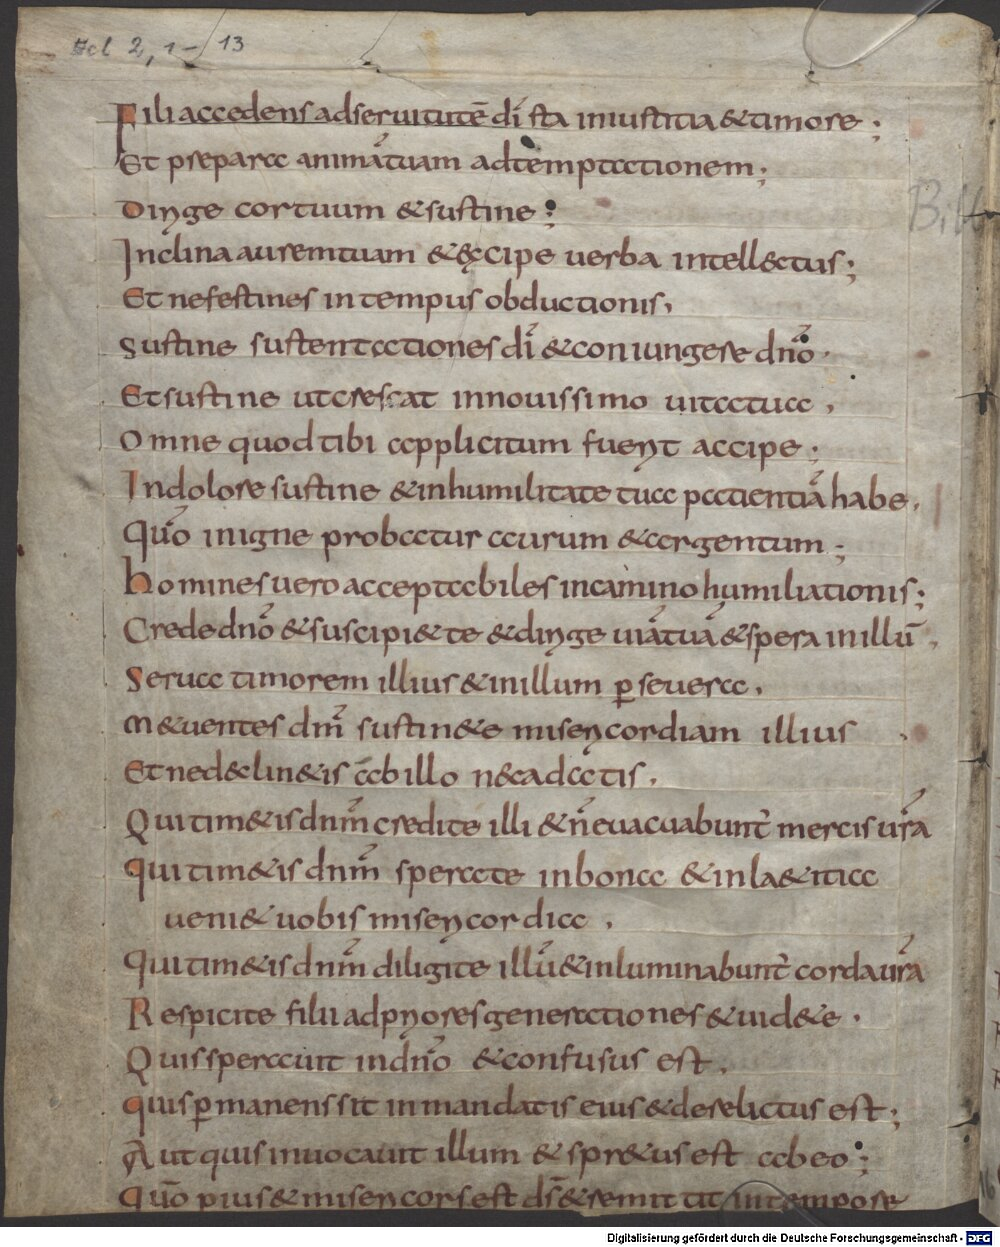 Ecl 2, 1 - 13
Fili accedens ad seruitutē dī sta in iustitia & timore ;
Et prepara animā tuam ad temptationem ;
Dirige cor tuum & sustine ;
Inclina aurem tuam & excipe uerba intellectus ;
Et ne festines in tempus obductionis ,
Sustine sustentationes dī & coniungere dnō .
Et sustine ut crescat in nouissimo uita tua ,
Omne quod tibi applicitum fuerit accipe ;
In dolore sustine & in humilitate tua patientiā habe .
Qūo in igne probatur aurum & argentum ;
Homines uero acceptabiles in camino humiliationis ;
Crede dnō & suscipi& te & dirige uiā tuā & spera in illū .
Serua timorem illius & in illum ꝑseuera .
M&uentes dn̄i sustin&e misericordiam illius .
Et ne declin&is ab illo ne cadatis .
Qui tim&is dnm̄ credite illi & n̄ euacuabunt̄ mercis ur̄a
Qui tim&is dnm̄ sperate in bona & in la&itia
ueni& uobis misericordia .
Qui tim&is dnm̄ diligite illū & inluminabunt̄ corda ur̄a
Respicite filii ad priores generationes & uid&e .
Quis sperauit in dnō & confusus est .
Quis ꝑmanens sit in mandatis eius & derelictus est ;
Aut quis inuocauit illum & spr&us est ab eo ;
Qūo pius & misericors est ds̄ & remittit in tempore
Bibl
Digitalisierung gefördert durch die Deutsche Forschungsgemeinschaft - DFG